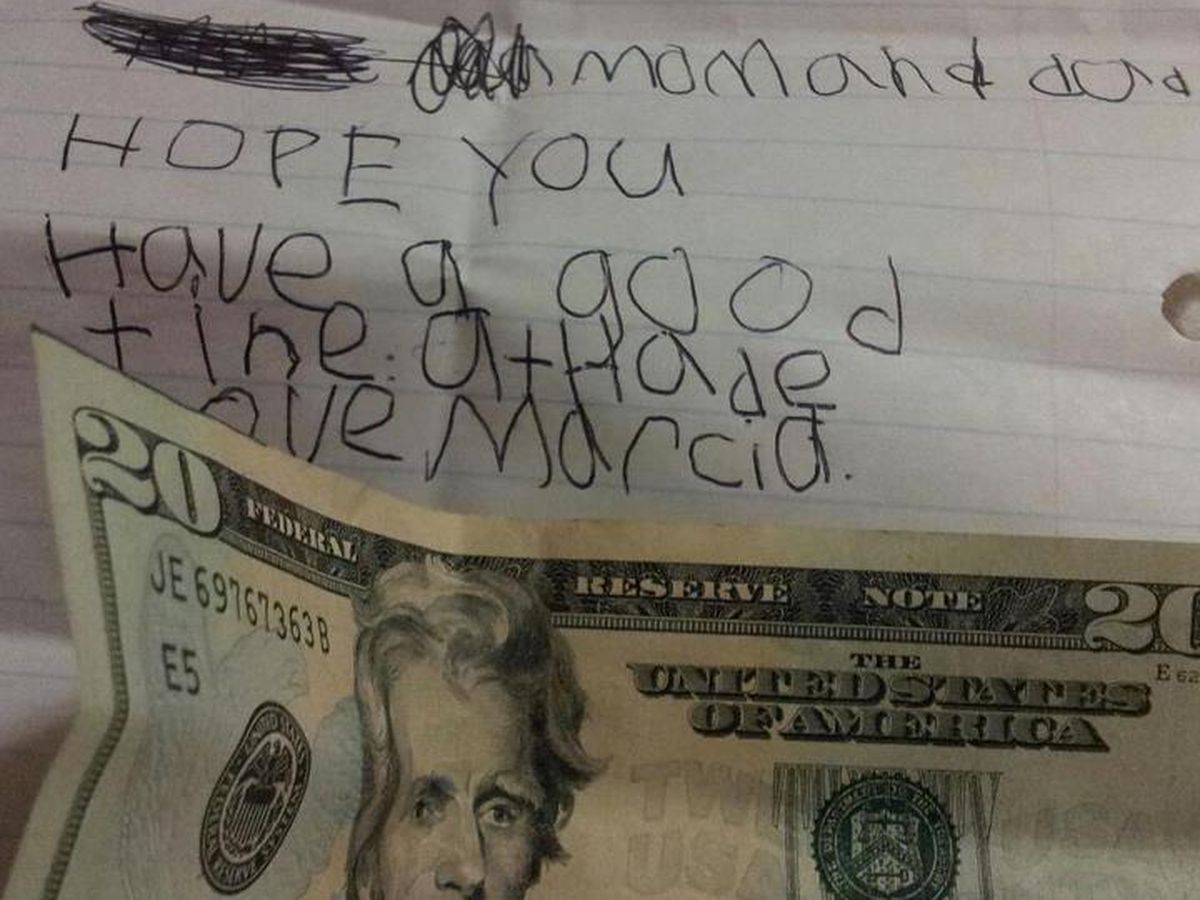 mom and dad
HOPE YOU
Have a good
tine. at Hade
ove Marcia.
20 FEDERAL RESERVE NOTE 20
JE69767363B
E5
THE
UNITED STATES
OF AMERICA
TW
USA